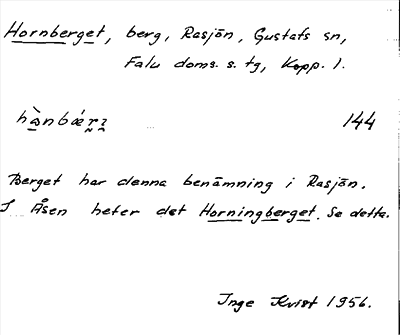 Hornberget, berg, Rasjön, Gustafs sn,
Falu doms. s. tg, Kopp. l.
144
Berget har denna benämning i Rasjön.
I Åsen heter det Horningberget. Se detta.
Inge Kvist 1956.